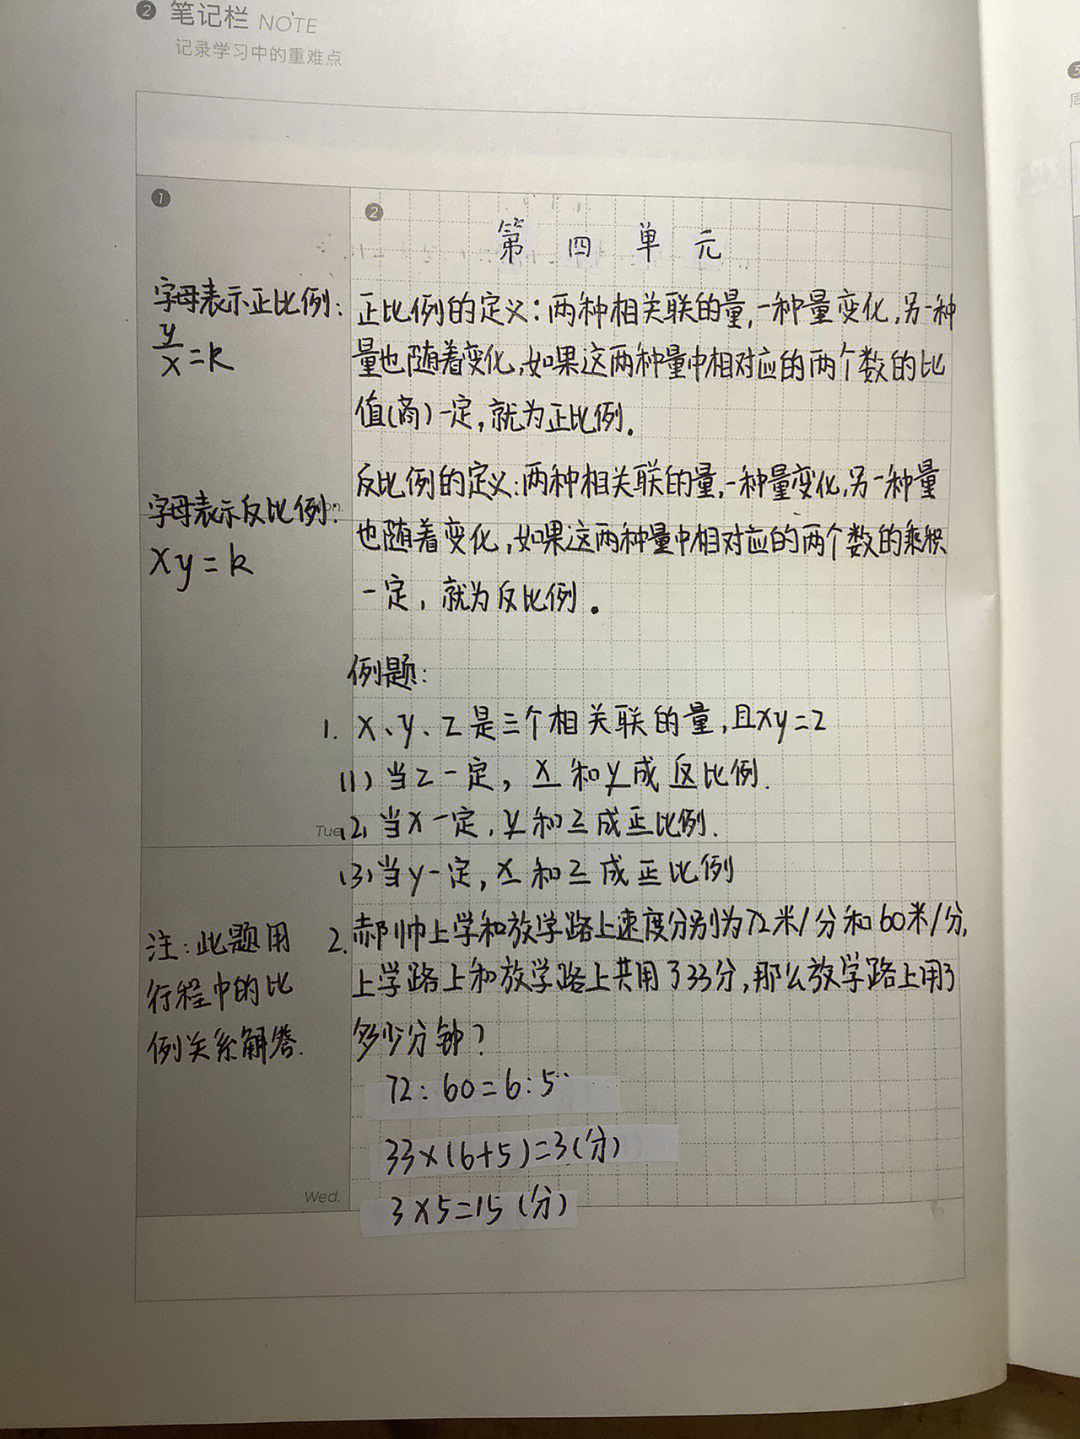 2 笔记栏 NOTE
记录学习中的重难点
1
2
第四单元
字母表示正比例:
y/x=k
正比例的定义:两种相关联的量,一种量变化,另一种
量也随着变化,如果这两种量中相对应的两个数的比
值(商)一定,就为正比例.
字母表示反比例:
xy=k
反比例的定义:两种相关联的量,一种量变化,另一种量
也随着变化,如果这两种量中相对应的两个数的乘积
一定,就为反比例.
例题:
1. X、y、Z是三个相关联的量,且xy=Z
(1)当Z一定,X和y成反比例.
Tue
(2)当X一定,y和Z成正比例.
(3)当y一定,X和Z成正比例
注:此题用
行程中的比
例关系解答.
2.郝帅上学和放学路上速度分别为72米/分和60米/分,
上学路上和放学路上共用了33分,那么放学路上用了
多少分钟?
72:60=6:5
33×(6+5)=3(分)
Wed.
3×5=15(分)